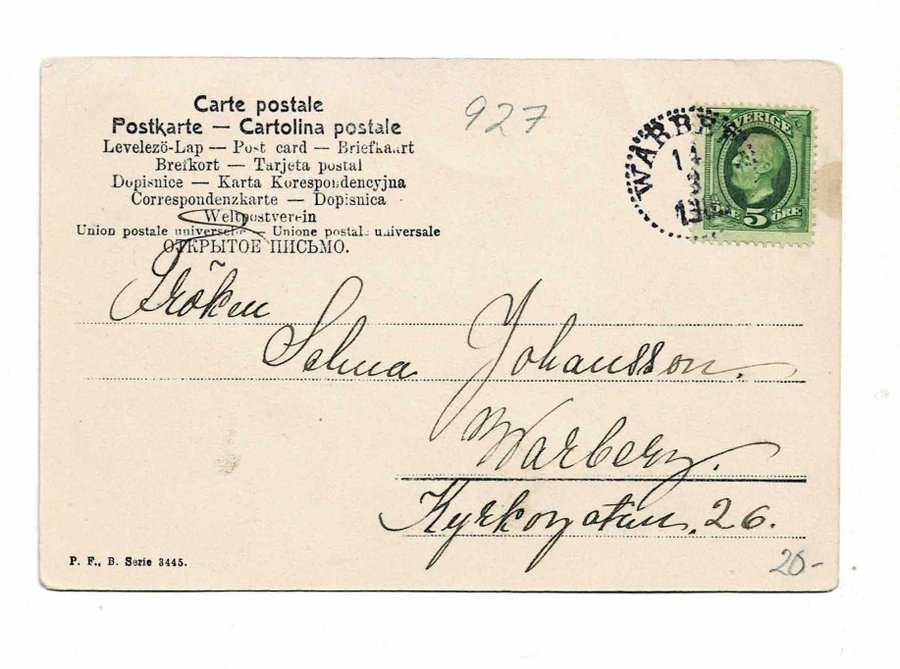 Carte postale
Postkarte — Cartolina postale
Levelező-Lap — Post card — Briefkaart
Brefkort — Tarjeta postal
Dopisnice — Karta Korespondencyjna
Correspondenzkarte — Dopisnica
Weltpostverein
Union postale universelle — Unione postale universale
ОТКРЫТОЕ ПИСЬМО.
927
WARBERG
14
3
SVERIGE
5 ÖRE
Fröken
Selma Johansson.
Warberg.
Kyrkogatan. 26.
P. F., B. Serie 3445.
20-